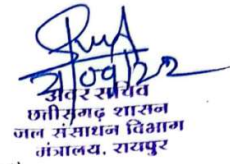 21/09/22
अवर सचिव
छत्तीसगढ़ शासन
जल संसाधन विभाग
मंत्रालय, रायपुर